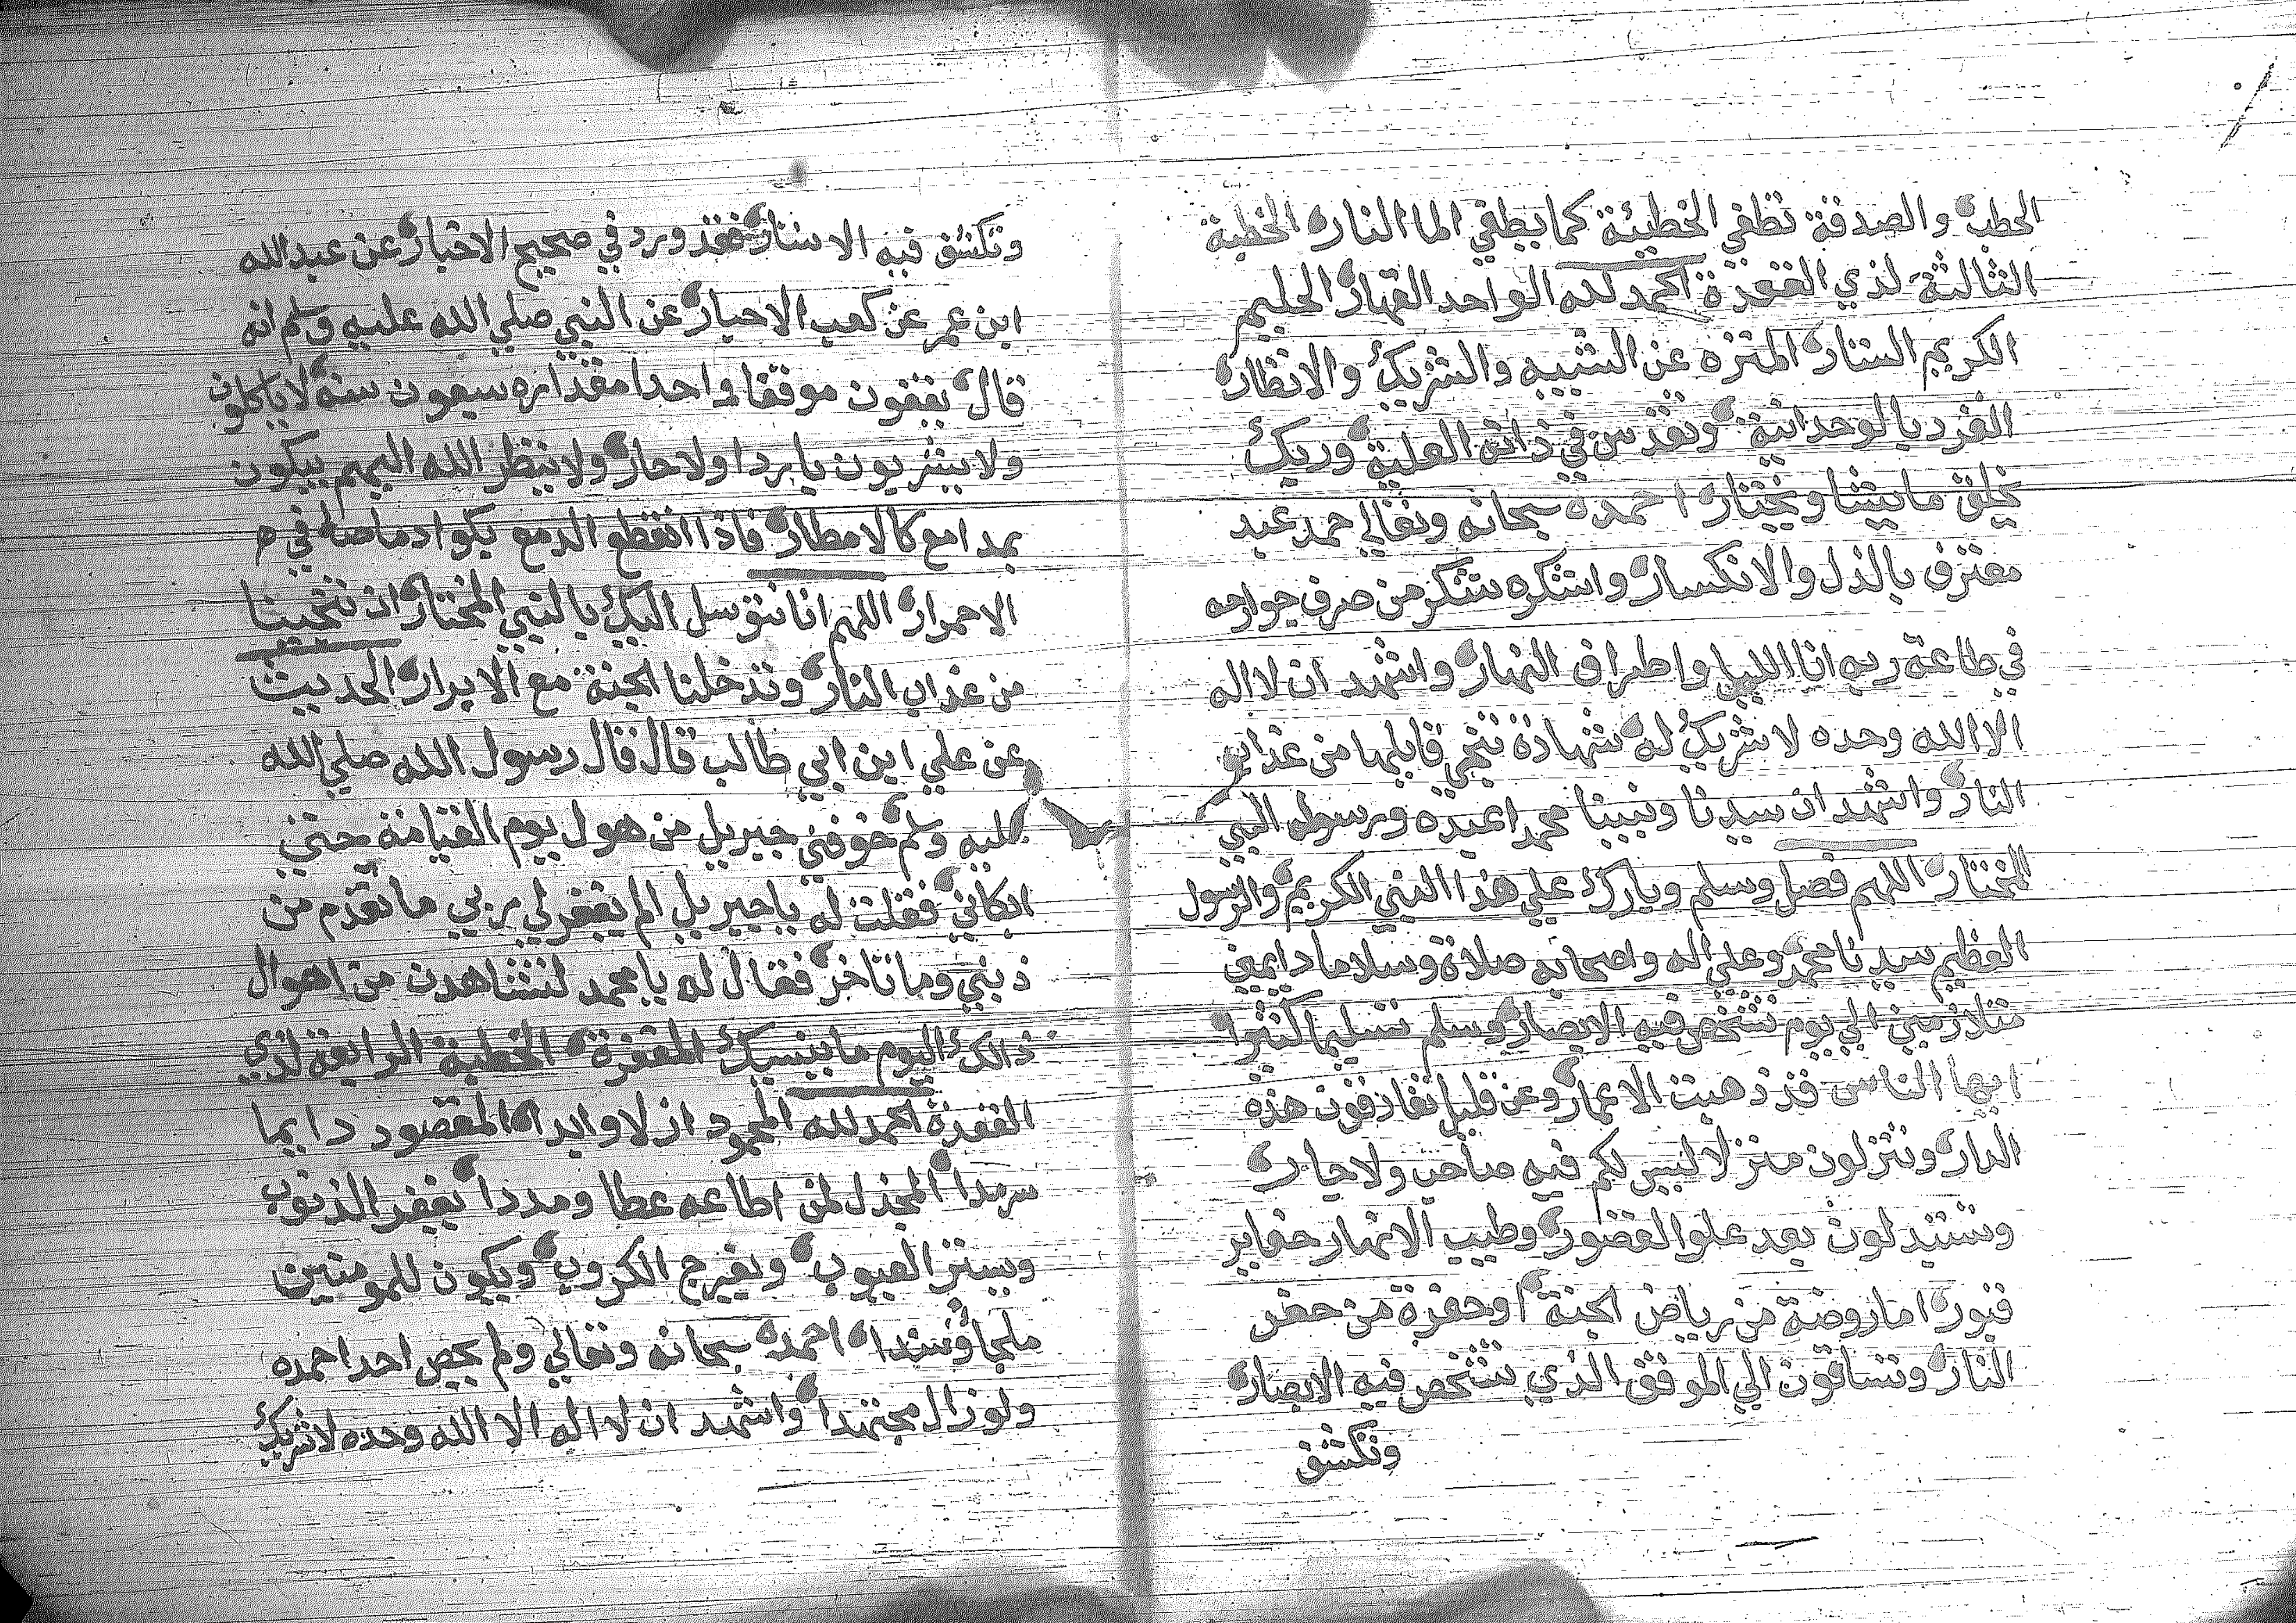 الحطب والصدقة تطفي الخطيئة كما يطفي الما النار الخطبة
الثالثة لذي القعدة الحمد لله الواحد القهار الحليم
الكريم الستار المنزه عن الشبيه والشريك والانظار
الفرد بالوحدانية وتقدس في ذاته العلية وربك
يخلق ما يشا ويختار احمده سبحانه وتعالي حمد عبد
معترف بالذل والانكسار واشكره شكر من صرف جوارحه
في طاعة ربه انا الليل واطراف النهار واشهد ان لا اله
الا الله وحده لا شريك له شهادة تنجي قايلها من عذاب
النار واشهد ان سيدنا ونبينا محمدا عبده ورسوله النبي
المختار اللهم فصل وسلم وبارك علي هذا النبي الكريم والرسول
العظيم سيدنا محمد وعلي اله واصحابه صلاة وسلاما دايمين
متلازمين الي يوم تشخص فيه الابصار وسلم تسليما كثيرا
ايها الناس قد ذهبت الاعمار وعن قليل تفارقون هذه
الدار وتنزلون منزلا ليس لكم فيه صاحب ولا جار
وستبدلون بعد علو القصور وطيب الانهار حفاير
قبور اما روضة من رياض الجنة او حفرة من حفر
النار وتساقون الي الموقف الذي تشخص فيه الابصار
وتكشف
وتكشف فيه الاستار فقد ورد في صحيح الاخبار عن عبد الله
ابن عمر عن كعب الاحبار عن النبي صلي الله عليه وسلم انه
قال يقفون موقفا واحدا مقداره سبعون سنة لا ياكلون
ولا يشربون باردا ولا حار ولا ينظر الله اليهم يبكون
بمدامع كالامطار فاذا انقطع الدمع بكوا دما في
الاحمرار اللهم انا نتوسل اليك بالنبي المختار ان تنجينا
من عذاب النار وتدخلنا الجنة مع الابرار الحديث
عن علي ابن ابي طالب قال قال رسول الله صلي الله
عليه وسلم خوفني جبريل من هول يوم القيامة حتي
ابكاني فقلت له يا جبريل الم يغفر لي ربي ما تقدم من
ذنبي وما تاخر فقال له يا محمد لتشاهدن من اهوال
ذالك اليوم ما ينسيك المغفرة الخطبة الرابعة لذي
القعدة الحمد لله المحمود ازلا وابدا المقصود دايما
سرمدا المجزل لمن اطاعه عطا ومددا يغفر الذنوب
ويستر العيوب ويفرج الكروب ويكون للمومنين
ملجا وسندا احمده سبحانه وتعالي ولم يحص احد احمده
ولو زال مجتهدا واشهد ان لا اله الا الله وحده لا شريك